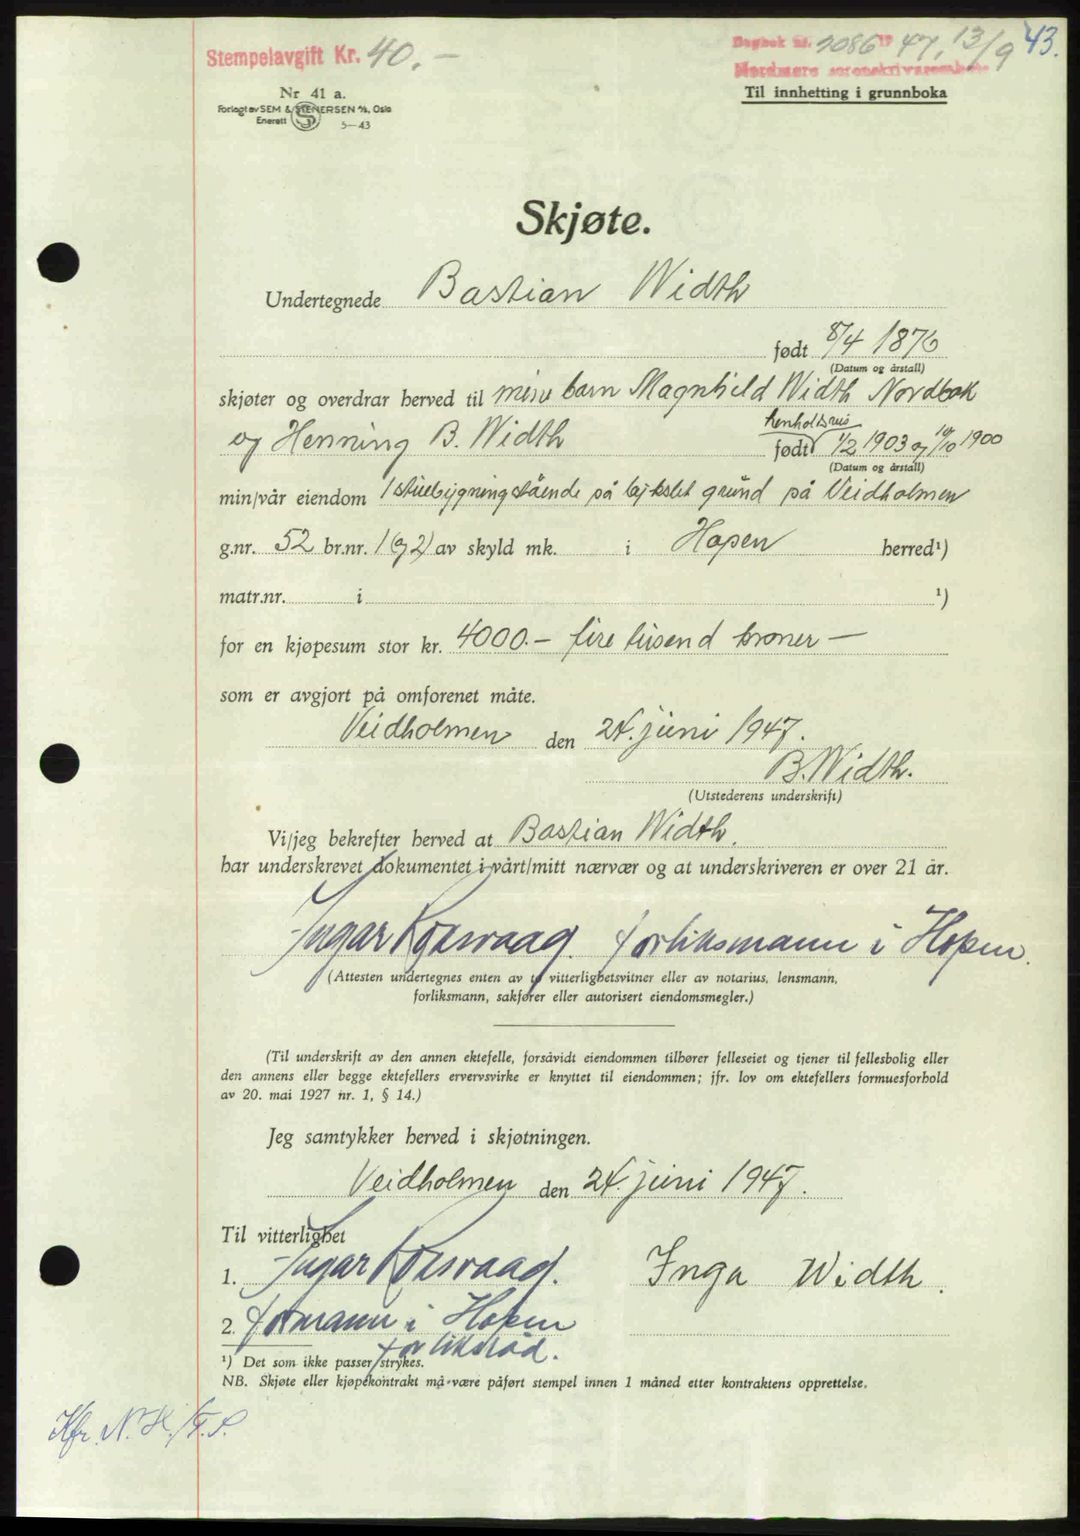 Stempelavgift Kr. 40.-
Dagbok nr. 2086 19 47, 13/9 43.
Nordmøre sorenskriverembete
Til innhetting i grunnboka
Nr 41 a.
Forlagt av SEM & STENERSEN A/S, Oslo
Enerett S 5-43
Skjøte.
Undertegnede Bastian Width
født 8/4 1876
(Datum og årstall)
skjøter og overdrar herved til mine barn Magnhild Width Nordbak
og Henning B. Width henholdsvis født 1/2 1903 og 10/10 1900
(Datum og årstall)
min/vår eiendom 1 stuebygning stående på bykslet grund på Veidholmen
g.nr. 52 br.nr. 1 (og 2) av skyld mk. i Hopen herred¹)
matr.nr. i ¹)
for en kjøpesum stor kr. 4000.- fire tusend kroner -
som er avgjort på omforenet måte.
Veidholmen den 24. juni 1947.
B. Width.
(Utstederens underskrift)
Vi/jeg bekrefter herved at Bastian Width.
har underskrevet dokumentet i vårt/mitt nærvær og at underskriveren er over 21 år.
Ingar Rosvaag. forliksmann i Hopen.
(Attesten undertegnes enten av to vitterlighetsvitner eller av notarius, lensmann,
forliksmann, sakfører eller autorisert eiendomsmegler.)
(Til underskrift av den annen ektefelle, forsåvidt eiendommen tilhører felleseiet og tjener til fellesbolig eller
den annens eller begge ektefellers ervervsvirke er knyttet til eiendommen; jfr. lov om ektefellers formuesforhold
av 20. mai 1927 nr. 1, § 14.)
Jeg samtykker herved i skjøtningen.
Veidholmen den 24. juni 1947.
Til vitterlighet
1. Ingar Rosvaag. Inga Width.
2. formann i Hopen
forliksråd.
¹) Det som ikke passer strykes.
NB. Skjøte eller kjøpekontrakt må være påført stempel innen 1 måned etter kontraktens opprettelse.
Kfr. N. H./T. S.